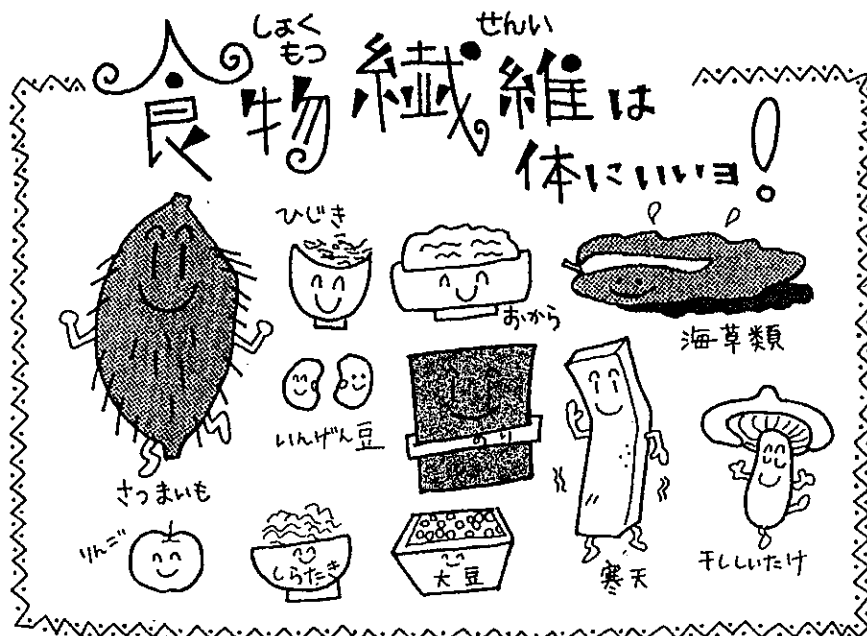 しょく
もつ
せんい
食物繊維は
体にいいヨ!
ひじき
おから
海草類
いんげん豆
のり
さつまいも
りんご
しらたき
大豆
寒天
干ししいたけ